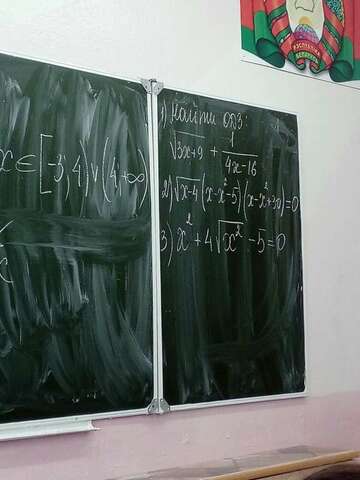 x ∈ [-3; 4) ∨ (4; +∞)
1) Найти ОДЗ:
√3x+9 + 1/4x-16
2) √x-4 (x-x²-5)(x-x²+30)=0
3) x² + 4√x² - 5 = 0
РЭСПУБЛІКА
БЕЛАРУСЬ